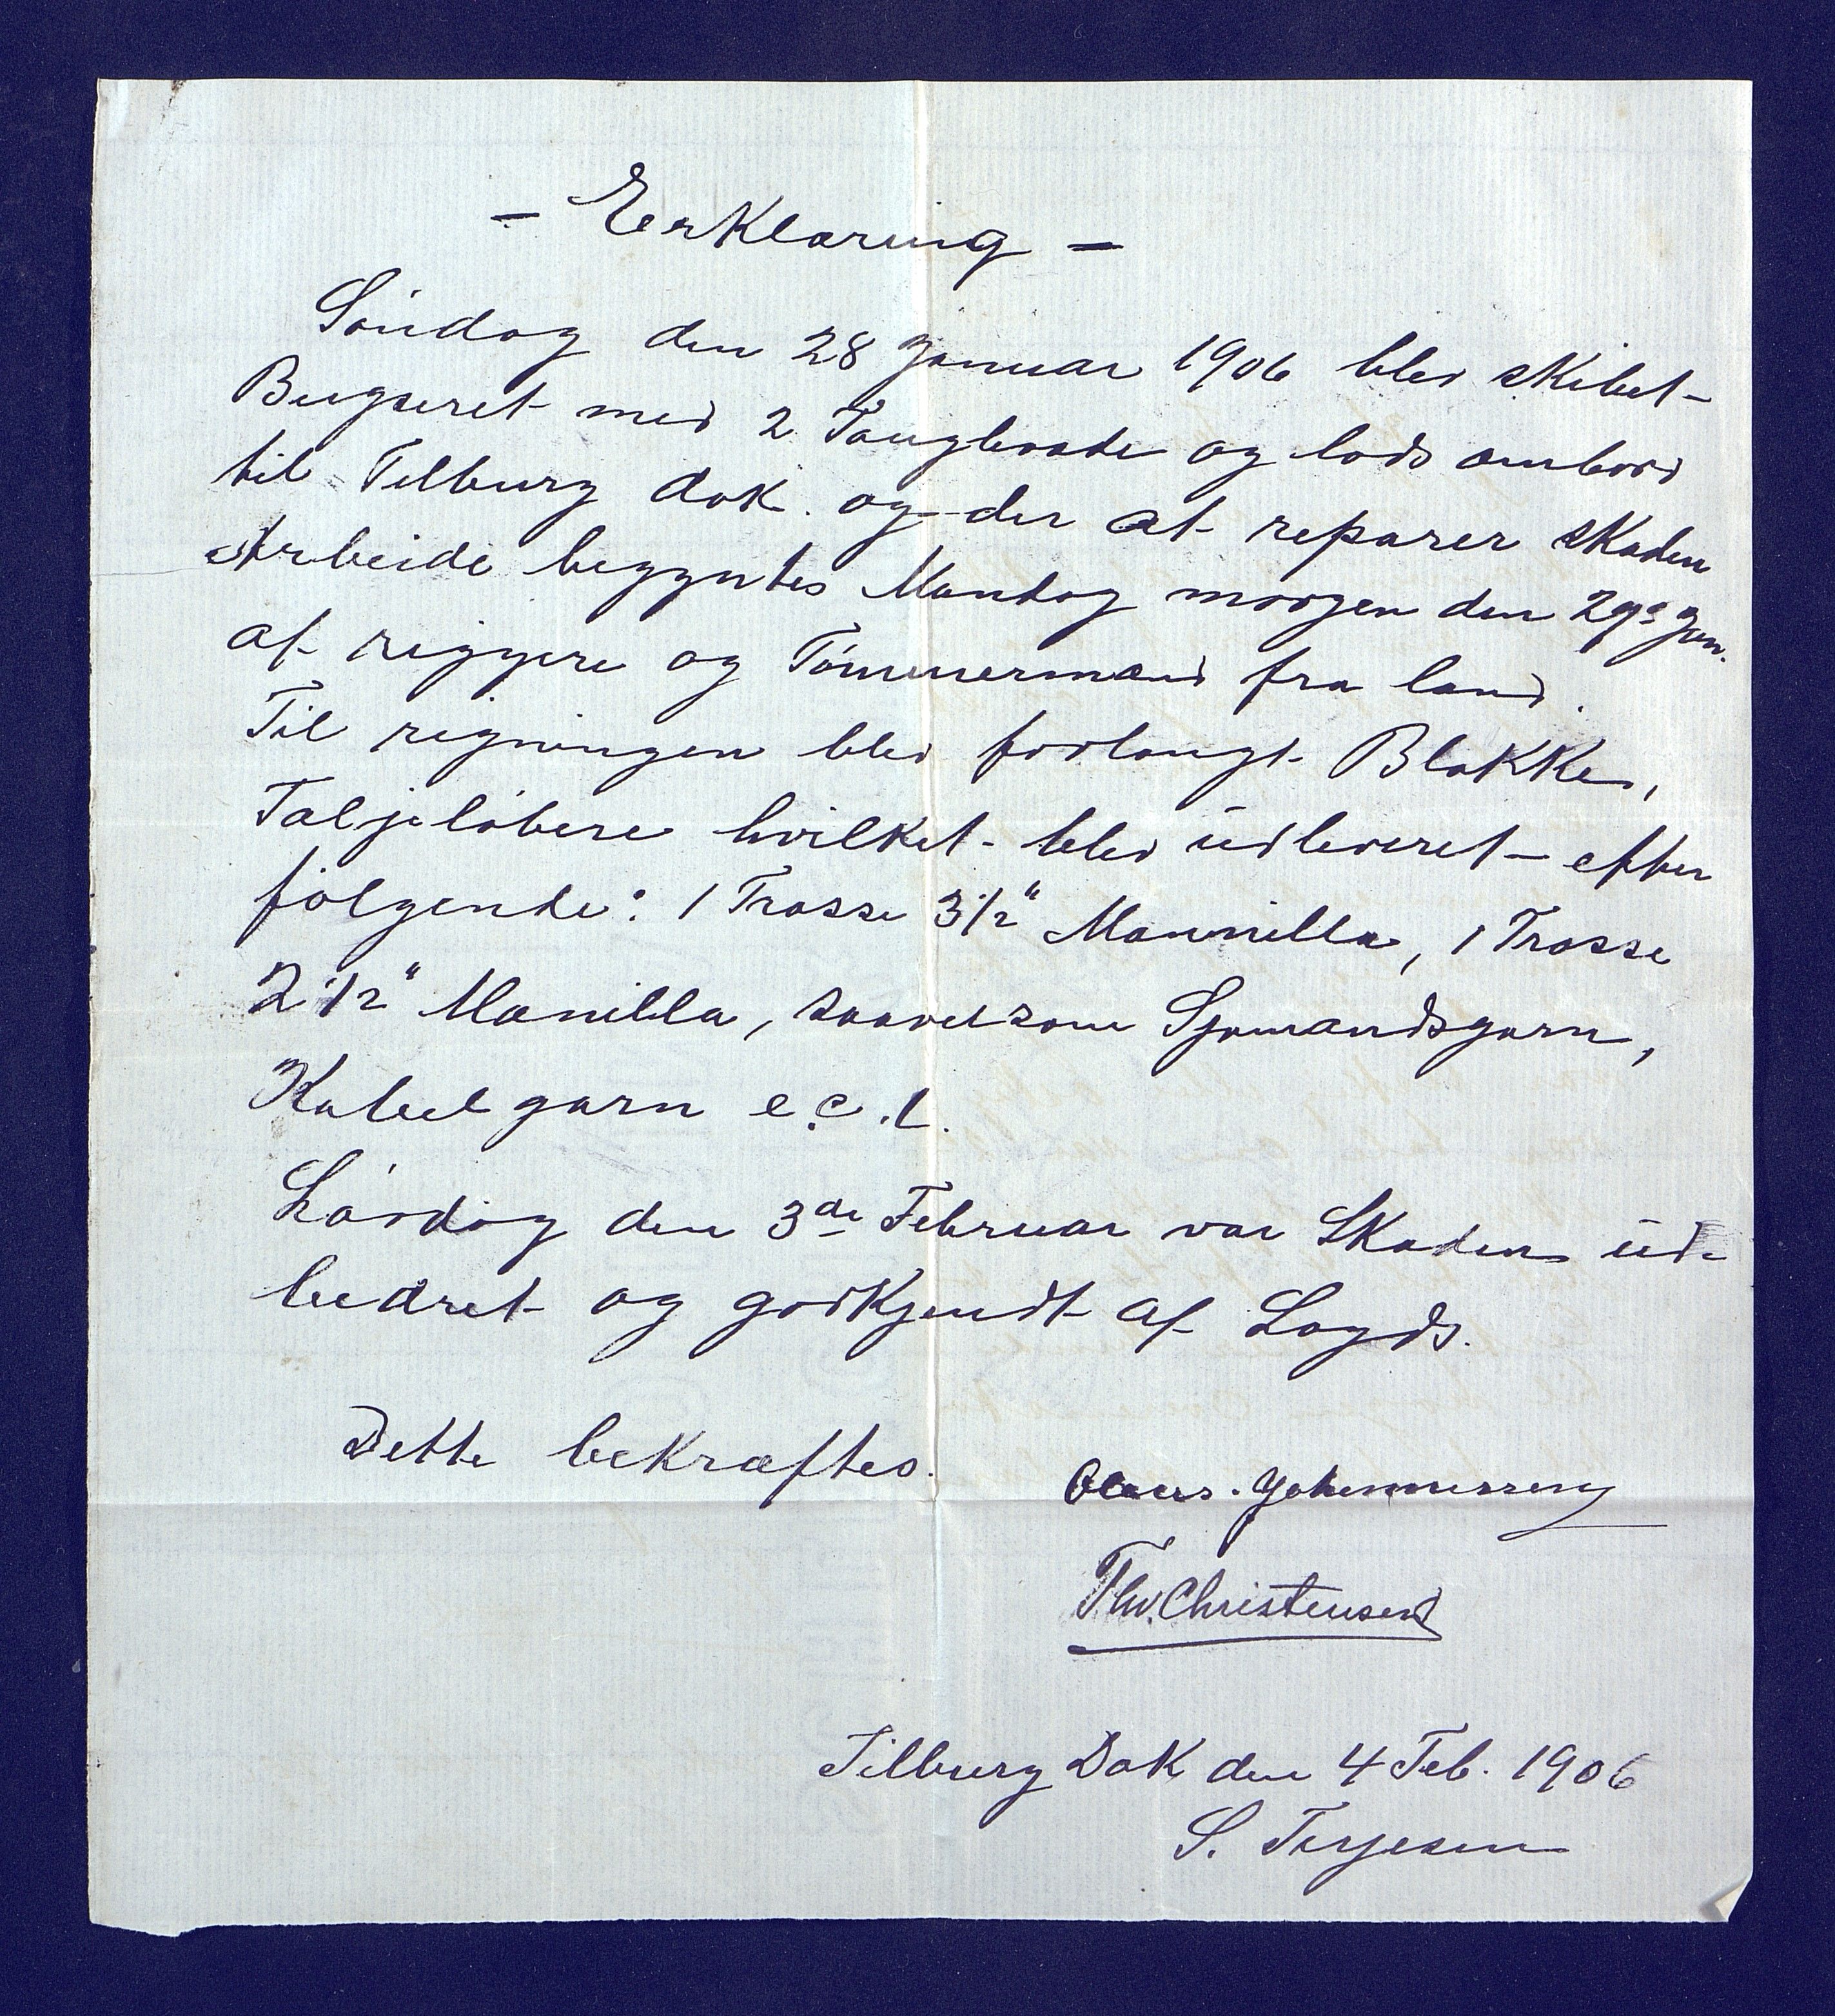 - Eerklaring -
Søndag den 28 Januar 1906 blev skibet
Bugseret med 2 Taugbaade og lods ombord
til Tilburg dok. og der at reparer skaden
Arbeide begyntes Mandag morgen den 29de Jan.
af riggere og Tømmermænd fra land.
Til rigningen blev forlangt Blokker,
Taljeløbere hvilket blev udleveret efter
følgende: 1 Trosse 3 1/2" Mannilla, 1 Trosse
2 1/2" Manilla, saavelsom Sjømandsgarn,
Kabelgarn e.c.t.
Lørdag den 3de Februar var Skaden ud-
bedret og godkjendt af Loyds.
Dette bekræftes.
Olaus. Johannessen
Thv. Christensen
Tilburg Dok den 4 Feb. 1906
S. Terjesen